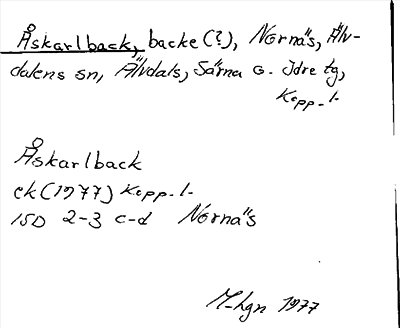 Åskarlback, backe (?), Nornäs, Älv-
dalens sn, Älvdals, Särna o. Idre tg,
Kopp. l.
Åskarlback
ek (1977) Kopp. l.
15D 2-3 c-d Nornäs
M-hgn 1977